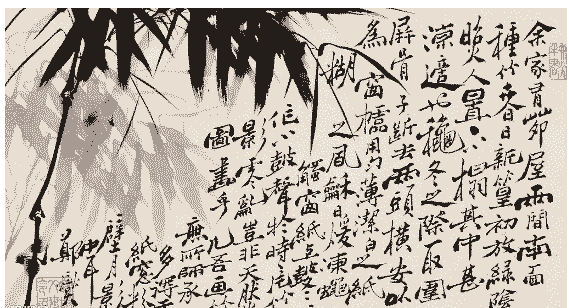 余家有茆屋兩間南面
種竹夏日新篁初放綠陰
照人置小榻其中甚
涼適也穐冬之際取圍
屏骨子斷去兩頭橫安
為窗櫺用勻薄潔白之紙
糊之風龢日煖凍蠅
觸窗紙上鼕
作小鼓聲於時
影零亂豈非天然
圖畫乎凡吾畫竹
無所師承
多得
紙窗
壁月影
鄭燮